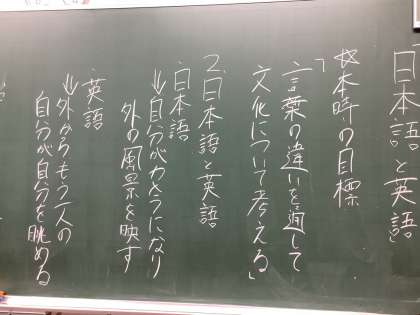 日本語と英語」
☆本時の目標
「言葉の違いを通して
文化について考える」
2.日本語と英語
・日本語
↓自分がカメラになり
外の風景を映す
・英語
↓外からもう一人の
自分が自分を眺める